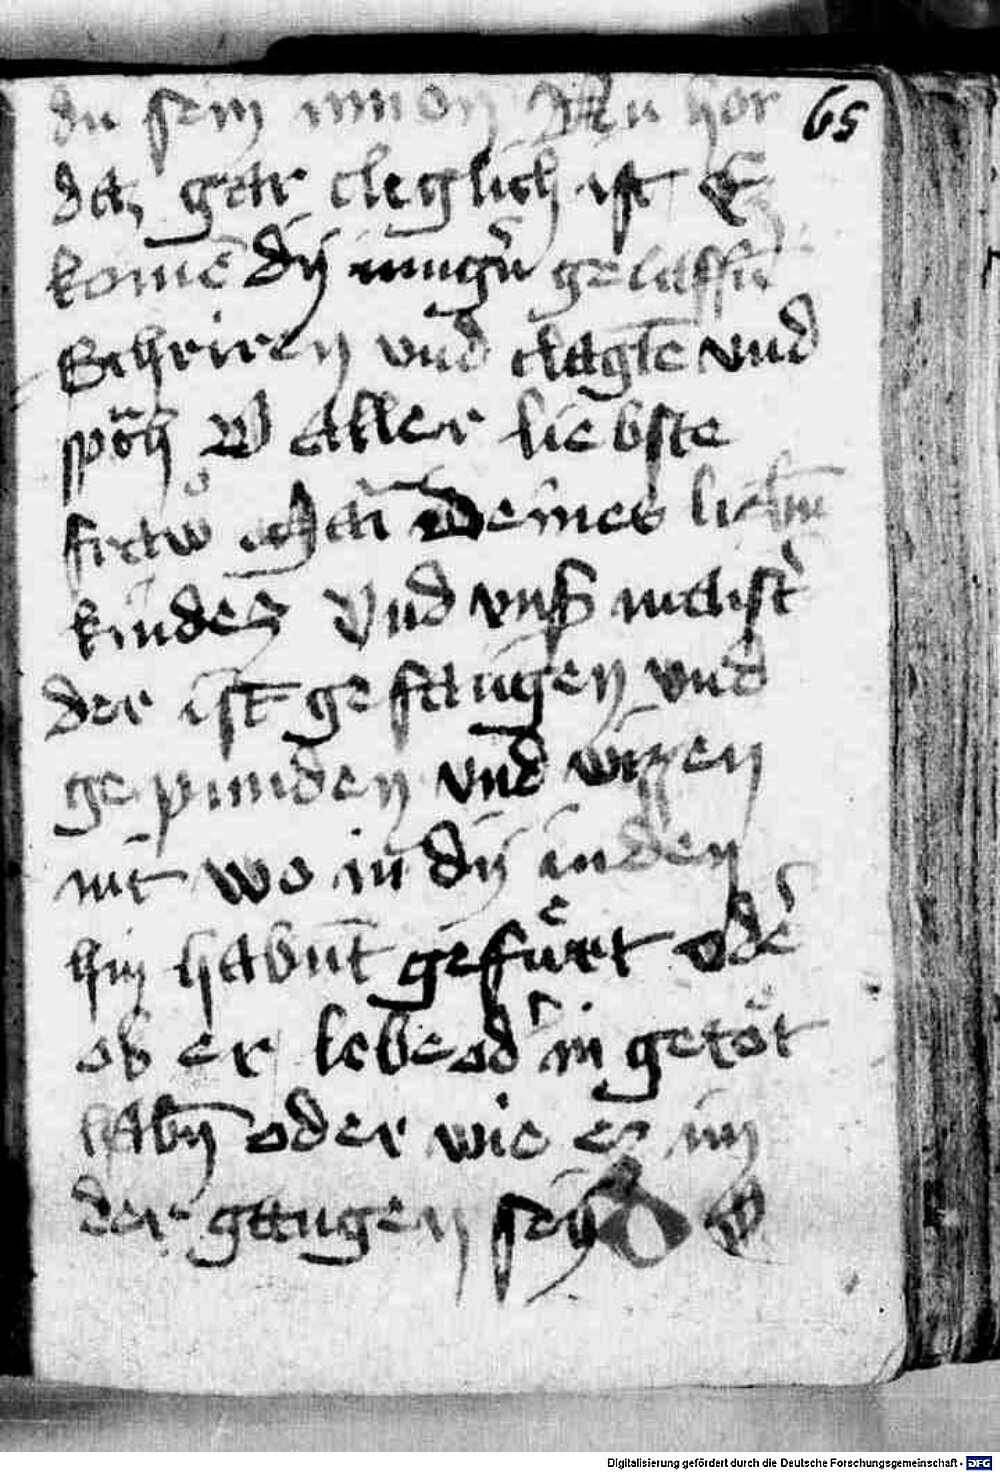 du sein minen Nu hor 65
daz gar cleglich ist Ez
komē dy iunger gelassn
Schriren vnd clagtē vnd
spch O aller liebste
fraw deines liebn
kindez Vnd vns maist
der ist gefangen vnd
gepunden vnd wizzen
nit wo in dy iuden
hin habnt gefurt oder
ob er lebe od in getot
habn oder wie ez im
der gangen sey O
Digitalisierung gefördert durch die Deutsche Forschungsgemeinschaft - DFG